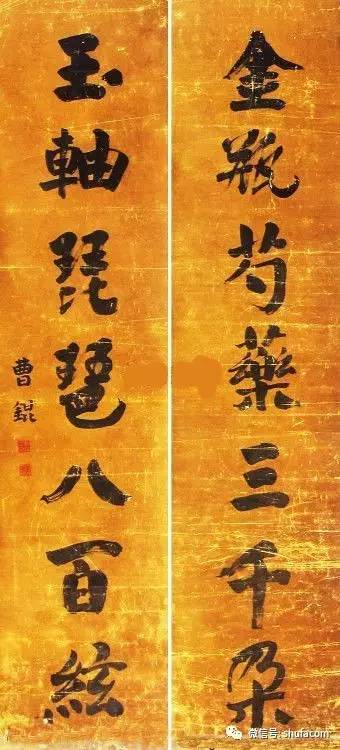 金瓶芍藥三千朶
玉軸琵琶八百絃
曹錕
微信号: shufacom